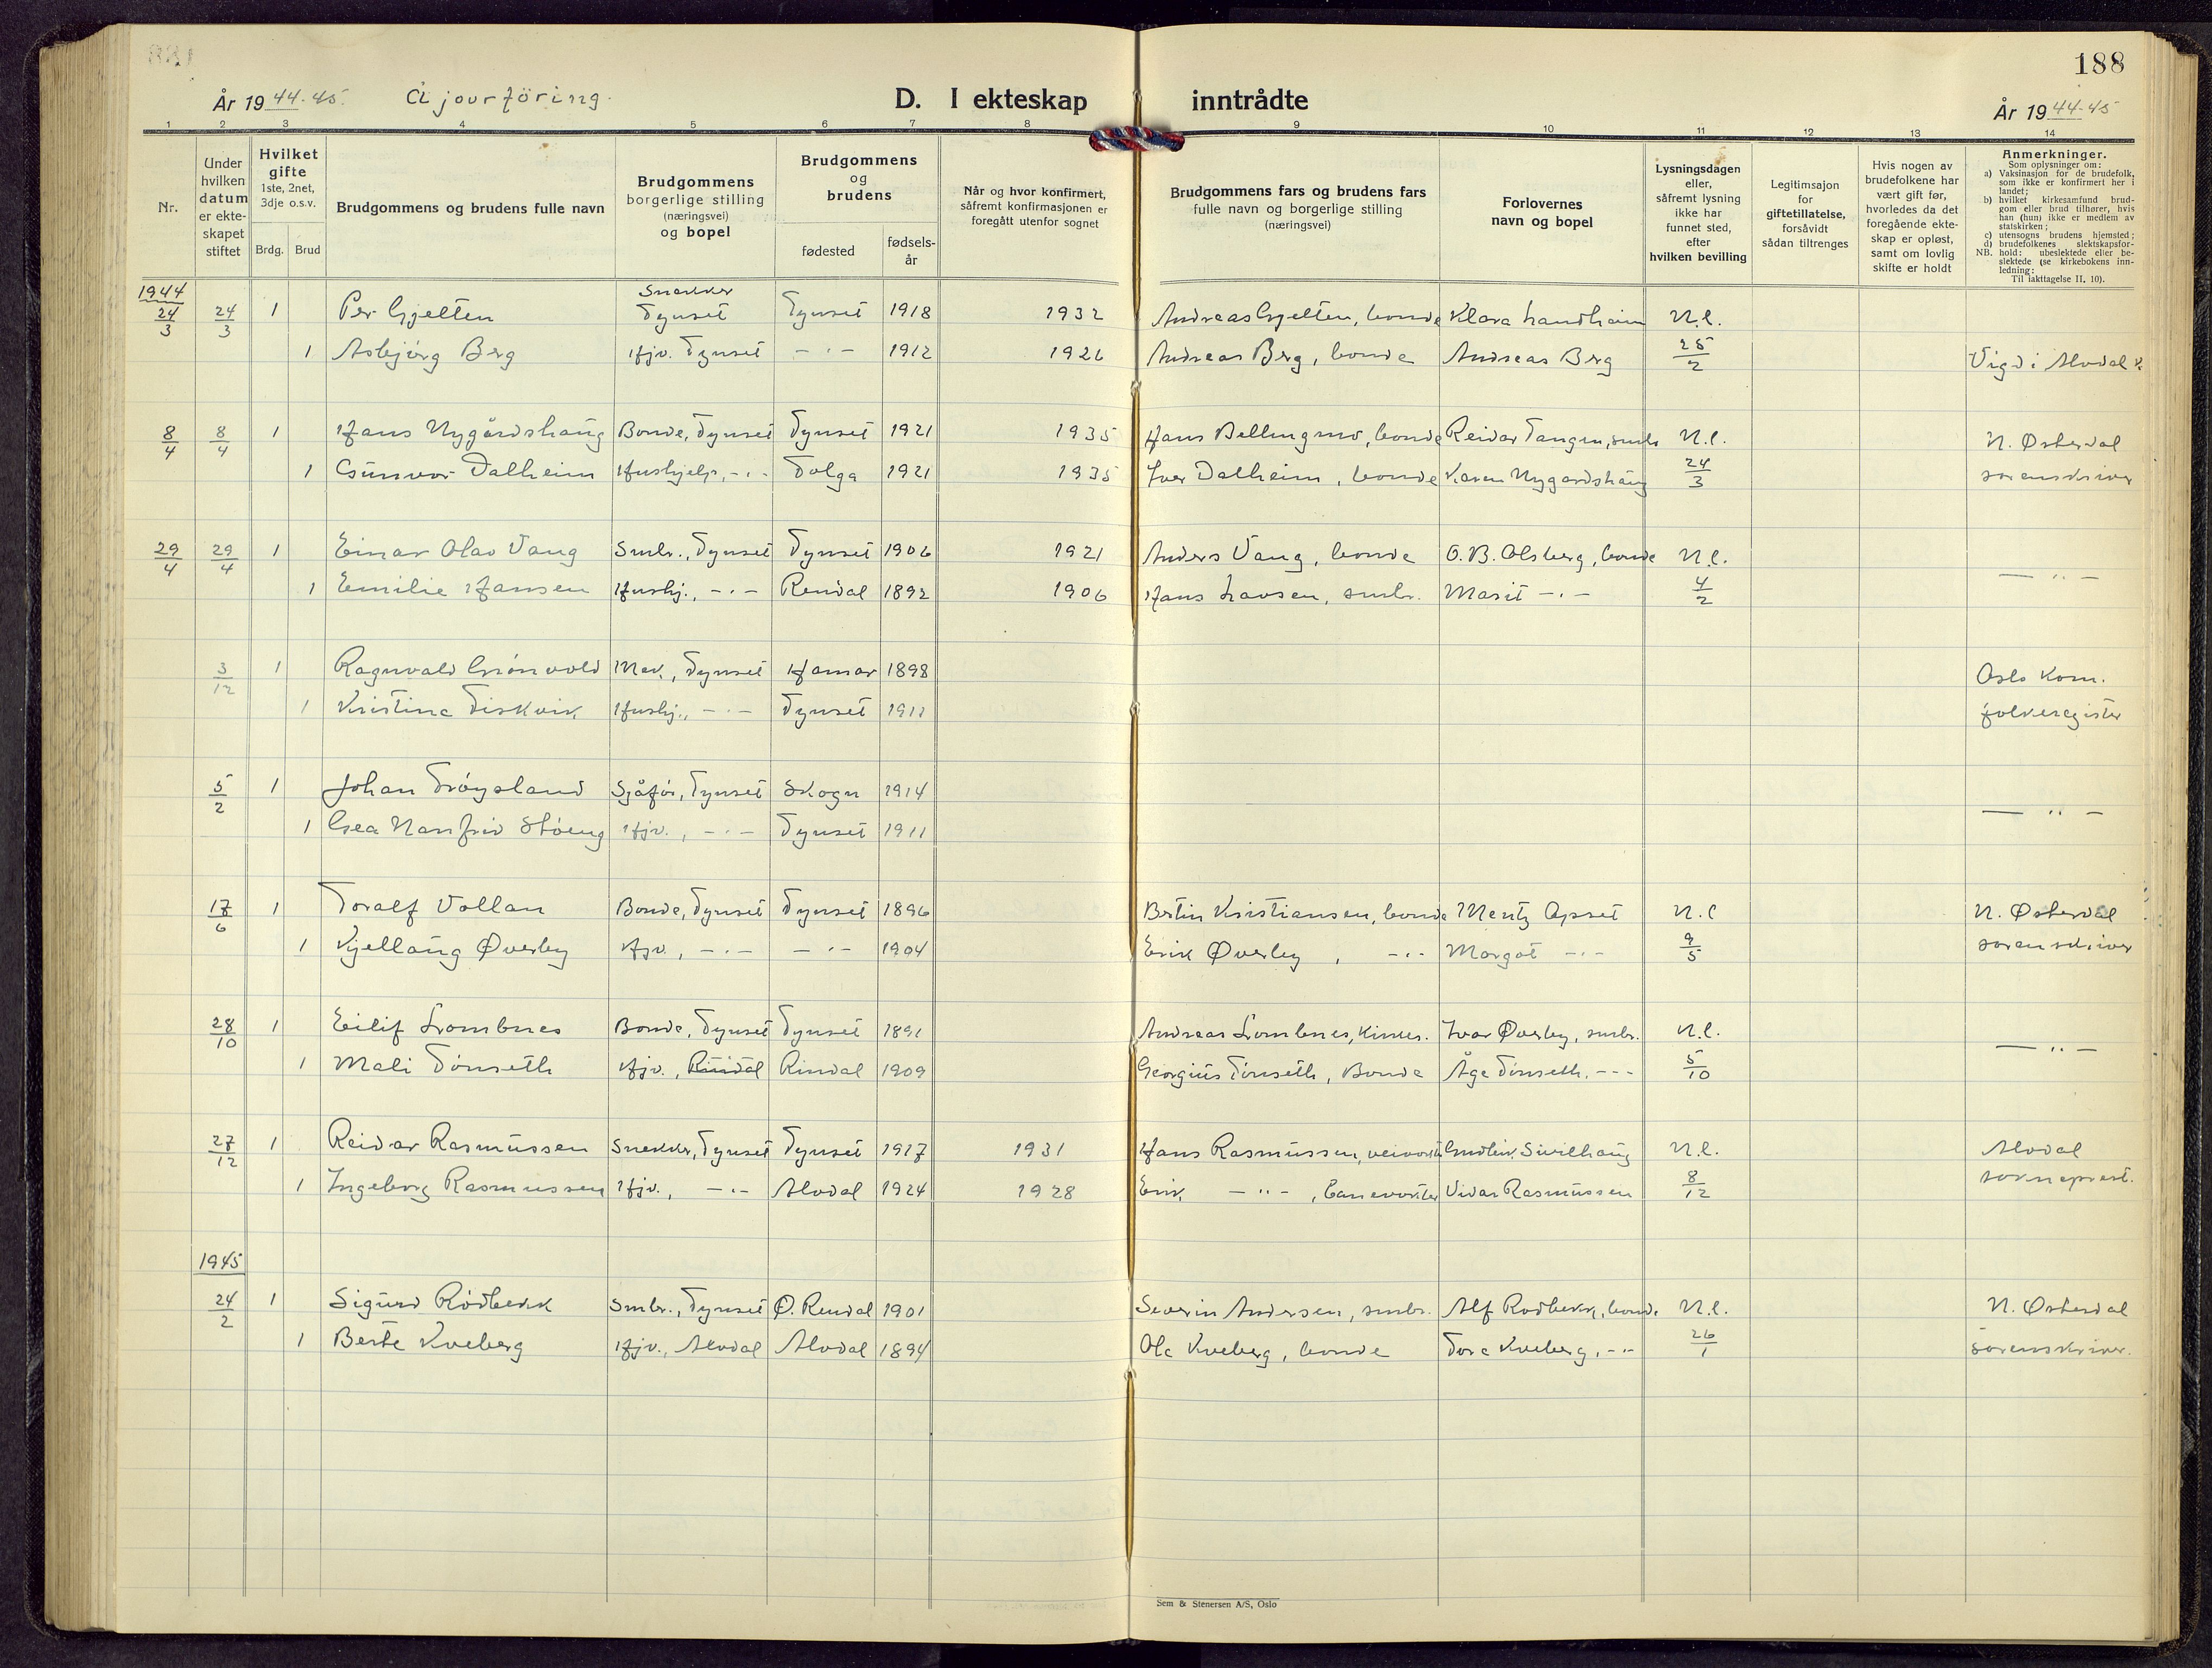 188
År 1944-45. Ajourföring. D. I ekteskap inntrådte År 1944-45
1 2 3 4 5 6 7 8 9 10 11 12 13 14
Nr.
Under hvilken datum er ekte-skapet stiftet
Hvilket gifte
1ste, 2net, 3dje o.s.v.
Brdg. Brud
Brudgommens og brudens fulle navn
Brudgommens borgerlige stilling (næringsvei) og bopel
Brudgommens og brudens
fødested
fødsels-år
Når og hvor konfirmert, såfremt konfirmasjonen er foregått utenfor sognet
Brudgommens fars og brudens fars fulle navn og borgerlige stilling (næringsvei)
Forlovernes navn og bopel
Lysningsdagen eller, såfremt lysning ikke har funnet sted, efter hvilken bevilling
Legitimsajon for giftetillatelse, forsåvidt sådan tiltrenges
Hvis nogen av brudefolkene har vært gift før, hvorledes da det foregående ekte-skap er opløst, samt om lovlig skifte er holdt
Anmerkninger.
Som oplysninger om:
a) Vaksinasjon for de brudefolk, som ikke er konfirmert her i landet;
b) hvilket kirkesamfund brud-gom eller brud tilhører, hvis han (hun) ikke er medlem av statskirken;
c) utensogns brudens hjemsted;
d) brudefolkenes slektskapsfor-
NB. hold: ubeslektede eller be-slektede (se kirkebokens inn-ledning:
Til iakttagelse II, 10).
1944
24/3 24/3 1 Per Gjelten Snekker Tynset Tynset 1918 1932 Andreas Gjelten, bonde Klara Landheim N.l.
1 Asbjörg Berg Hjv. Tynset -"- 1912 1926 Andreas Berg, bonde Andreas Berg 25/2 Vigd i Alvdal k.
8/4 8/4 1 Hans Nygårdshaug Bonde, Tynset Tynset 1921 1935 Hans Bellingmo, bonde Reidar Tangen, smbr N.l. N. Østerdal
1 Gunvor Dalheim Hushjelp, -"- Tolga 1921 1935 Iver Dalheim, bonde Karen Nygardshaug 24/3 sorenskriver
29/4 29/4 1 Einar Olav Vang Smbr., Tynset Tynset 1906 1921 Anders Vang, bonde O.B. Olsberg, bonde N.l.
1 Emilie Hansen Hushj., -"- Rendal 1892 1906 Hans Larsen, smbr. Marit -"- 4/2 -"-
3/12 1 Ragnvald Grönvold Mek., Tynset Hamar 1898 Oslo kom.
1 Kristine Tiskvik Hushj., -"- Tynset 1911 folkeregister
5/2 1 Johan Tröysland Sjåför, Tynset Skogn 1914
1 Gea Nanfrid Stöeng Hjv., -"- Tynset 1911 -"-
17/6 1 Toralf Vollan Bonde, Tynset Tynset 1896 Bertin Kristiansen, bonde Mentz Apset N.l N. Østerdal
1 Kjellaug Øverby Hjv., -"- -"- 1904 Erik Øverby, -"- Margot -"- 9/5 sorenskriver
28/10 1 Eilif Lombnes Bonde, Tynset Tynset 1891 Andreas Lombnes, Ivar Øverby, smbr. N.l.
1 Mali Tönseth Hjv., Rindal Rindal 1909 Georgius Tönseth, Bonde Åge Tönseth, -"- 5/10 -"-
27/12 1 Reidar Rasmussen Snekker, Tynset Tynset 1917 1931 Hans Rasmussen, veivokter Gudleik Sivilhaug N.l. Alvdal
1 Ingeborg Rasmussen Hjv., -"- Alvdal 1924 1928 Erik -"-, banevokter Vidar Rasmussen 8/12 sokneprest.
1945
24/2 1 Sigurd Rödbekk Smbr., Tynset Ø. Rendal 1901 Severin Andersen, smbr. Alf Rödbekk, bonde N.l. N. Østerdal
1 Berte Kveberg Hjv., Alvdal Alvdal 1894 Ole Kveberg, bonde Tore Kveberg, -"- 26/1 sorenskriver.
Sem & Stenersen A/S, Oslo